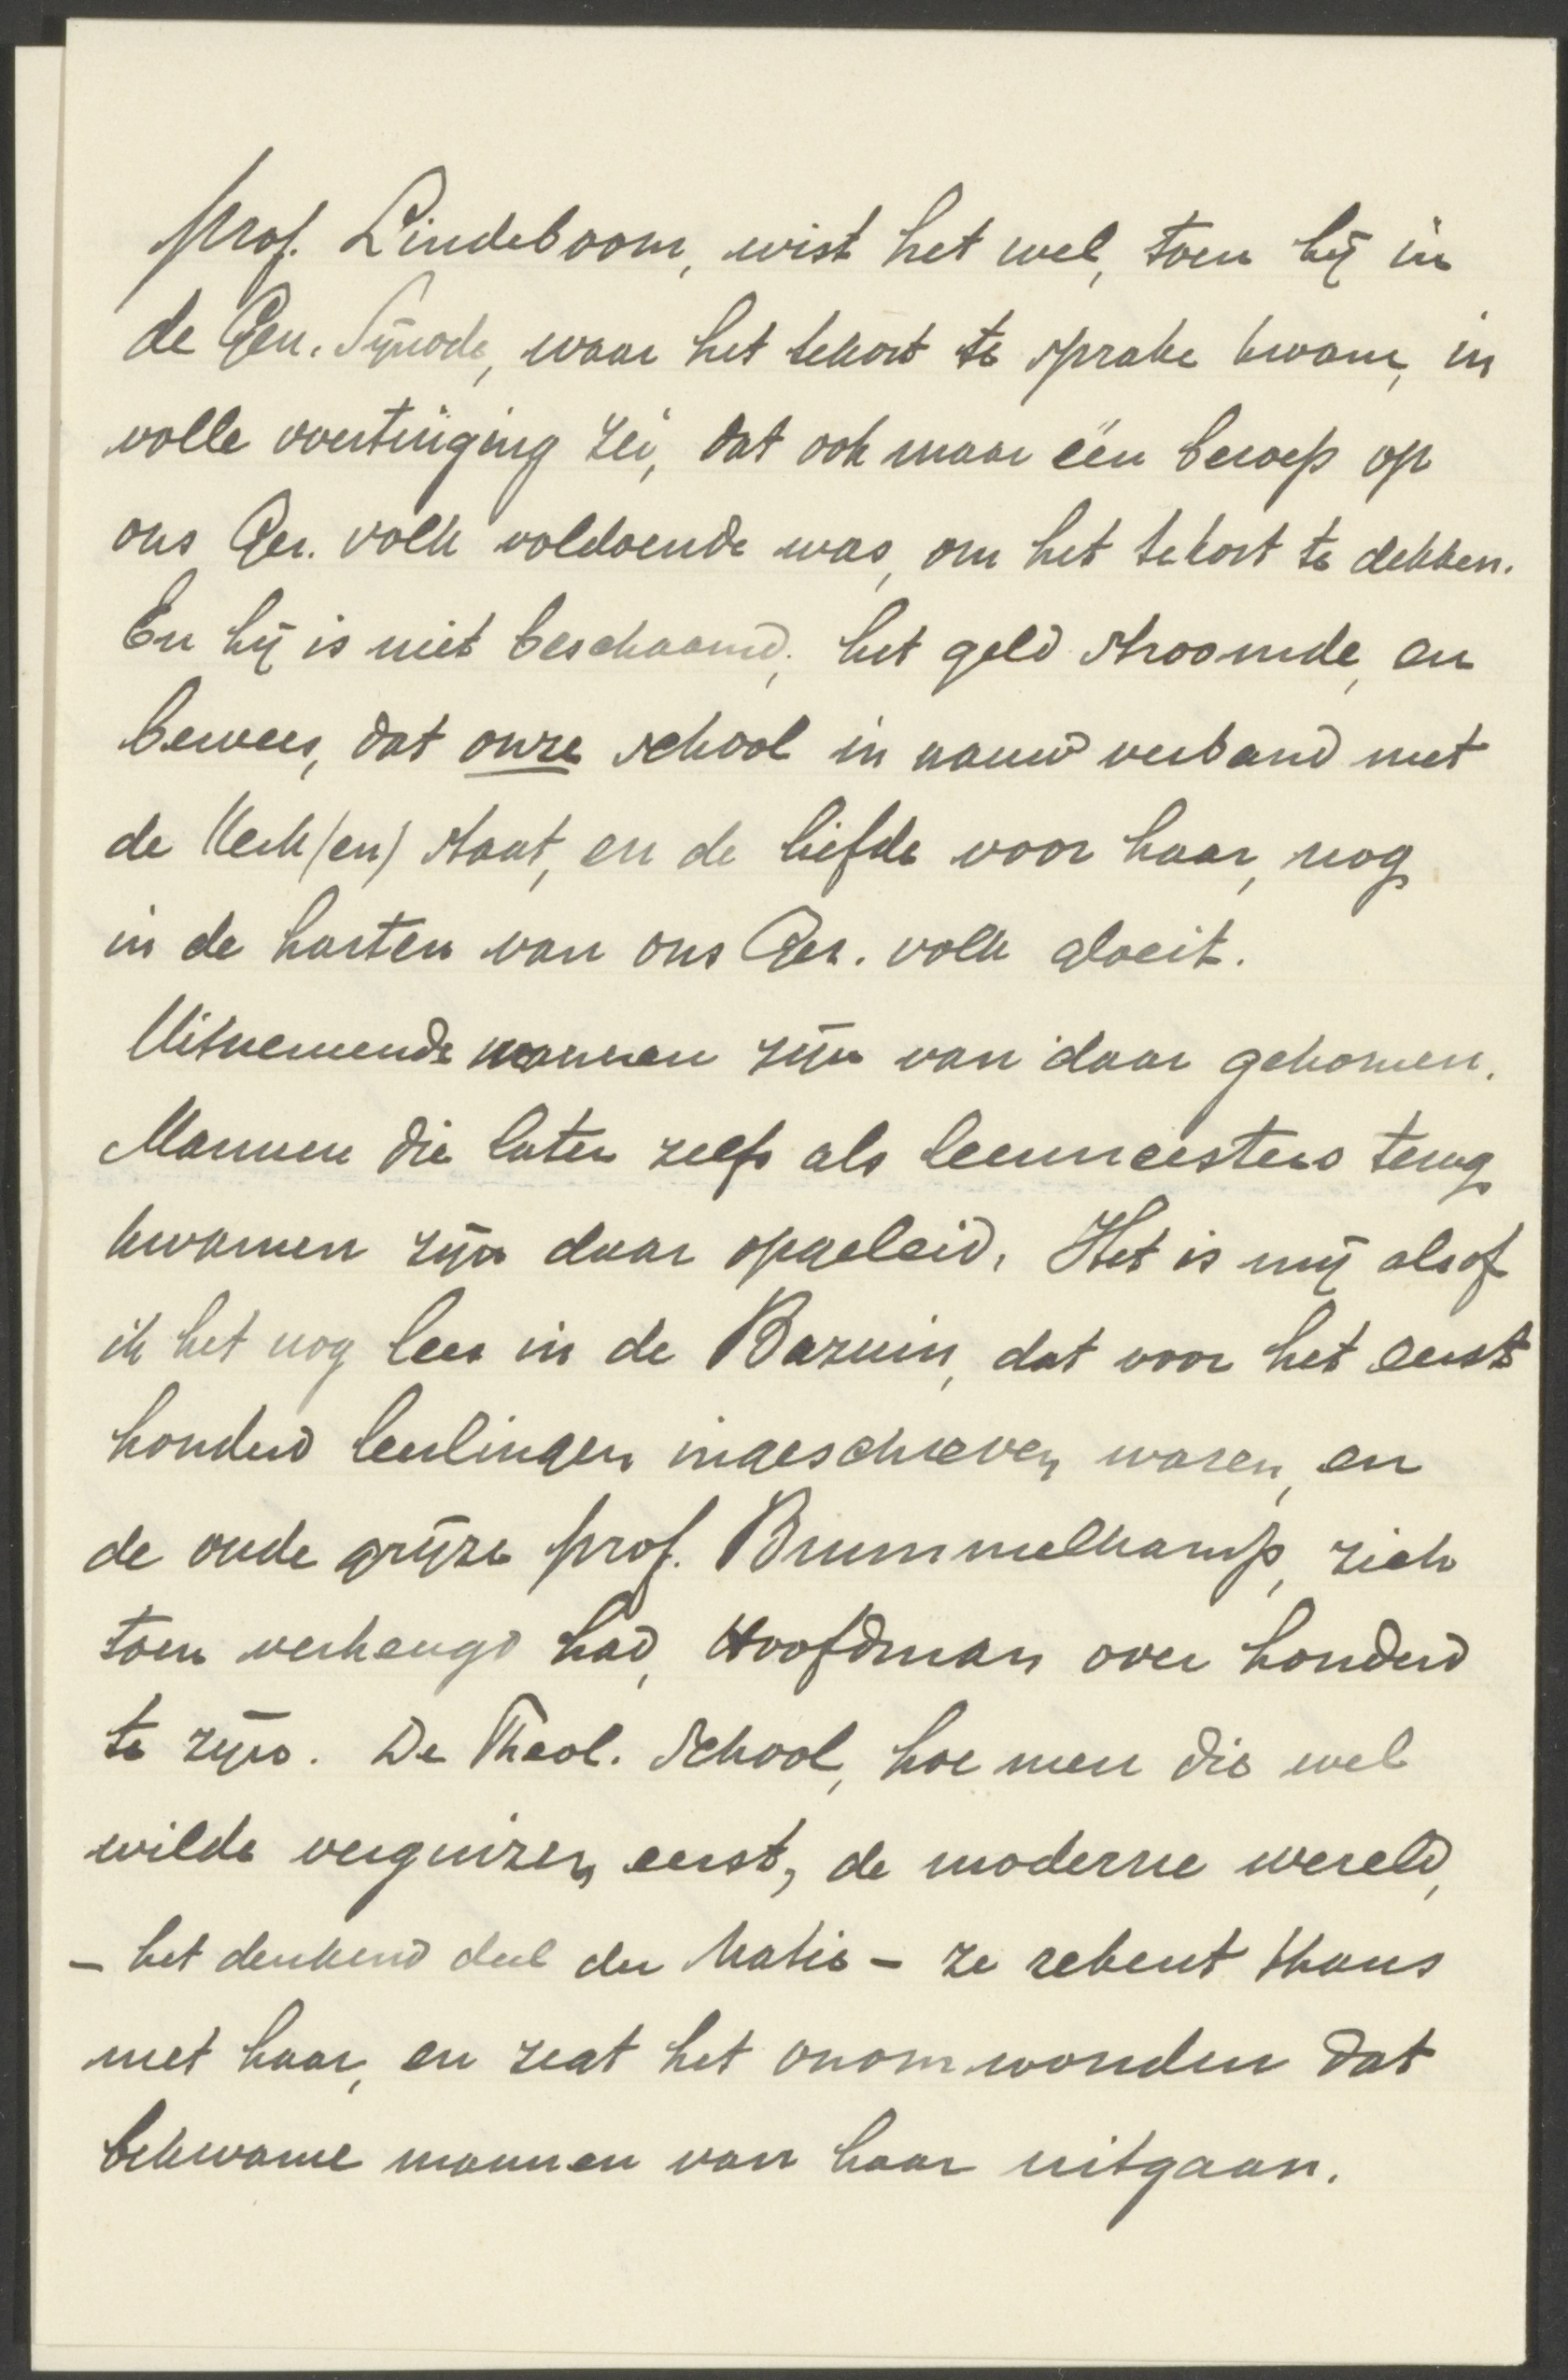 Prof. Lindeboom, wist het wel, toen hij in
de Gen. Synode, waar het tekort te sprake kwam, in
volle overtuiging zei, dat ook maar één beroep op
ons Ger. volk voldoende was, om het tekort te dekken.
En hij is niet beschaamd, het geld stroomde, en
bewees, dat onze school in nauw verband met
de Kerk(en) staat, en de liefde voor haar, nog
in de harten van ons Ger. volk gloeit.
Uitnemende mannen zijn van daar gekomen.
Mannen die later zelfs als leermeesters terug
kwamen zijn daar opgeleid. Het is mij alsof
ik het nog lees in de Bazuin, dat voor het eerst
honderd leerlingen ingeschreven waren, en
de oude grijze prof. Brummelkamp, zich
toen verheugd had, Hoofdman over honderd
te zijn. De Theol. School, hoe men die wel
wilde verguizen eerst, de moderne wereld,
- het denkend deel der Natie - ze rekent thans
met haar, en zegt het onomwonden dat
bekwame mannen van haar uitgaan.